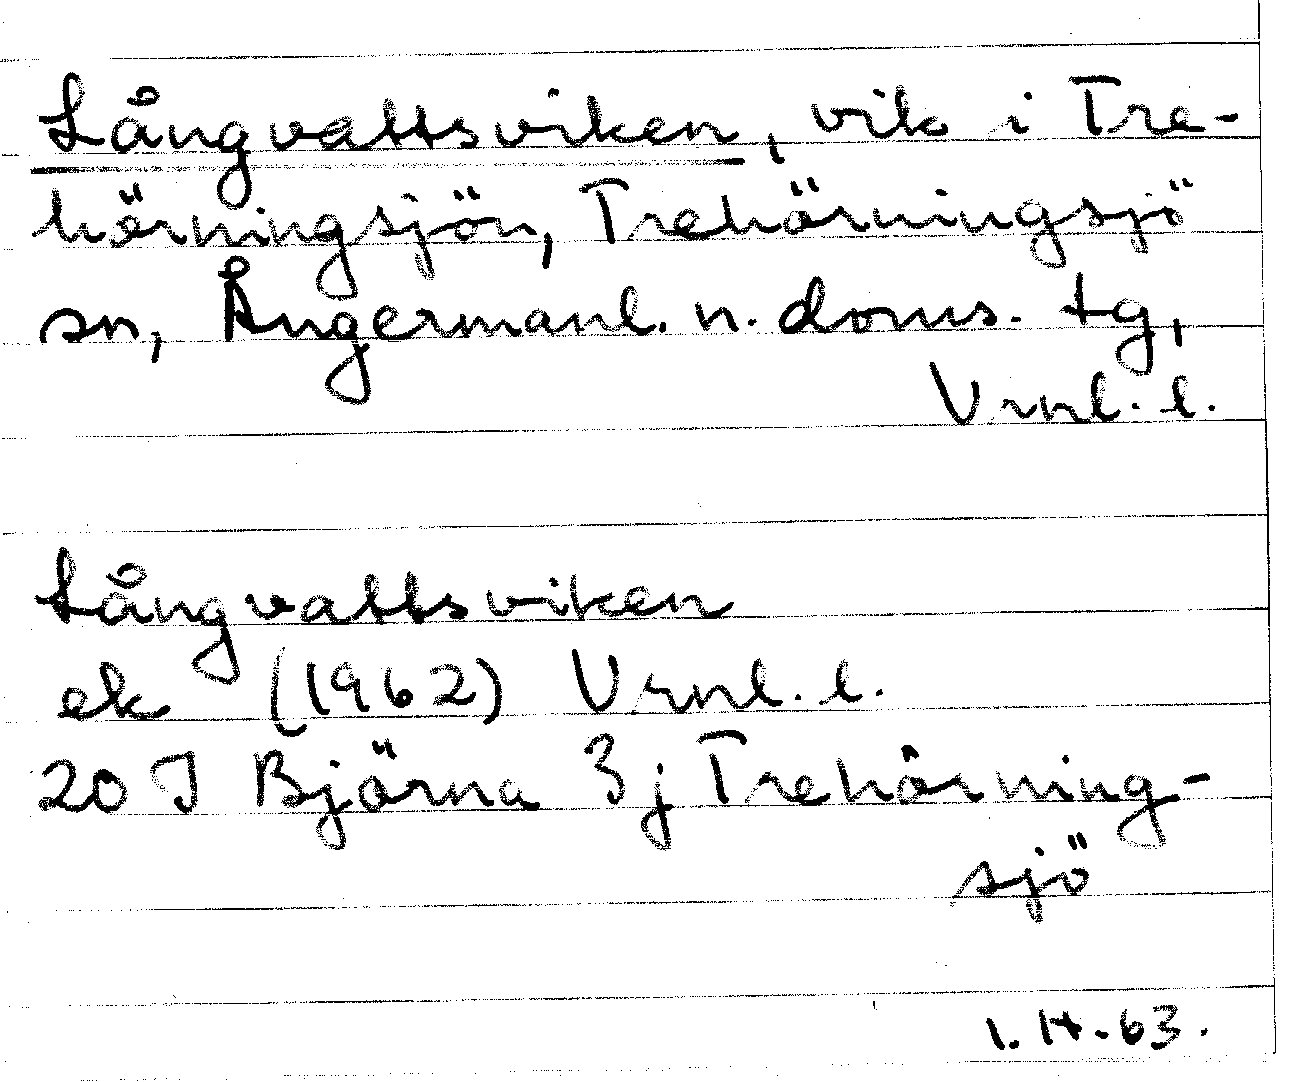 Långvattsviken, vik i Tre-
hörningsjön, Trehörningsjö
sn, Ångermanl. n. doms. tg,
Vrnl. l.
Långvattsviken
ek (1962) Vrnl. l.
20 J Björna 3j Trehörning-
sjö
63.